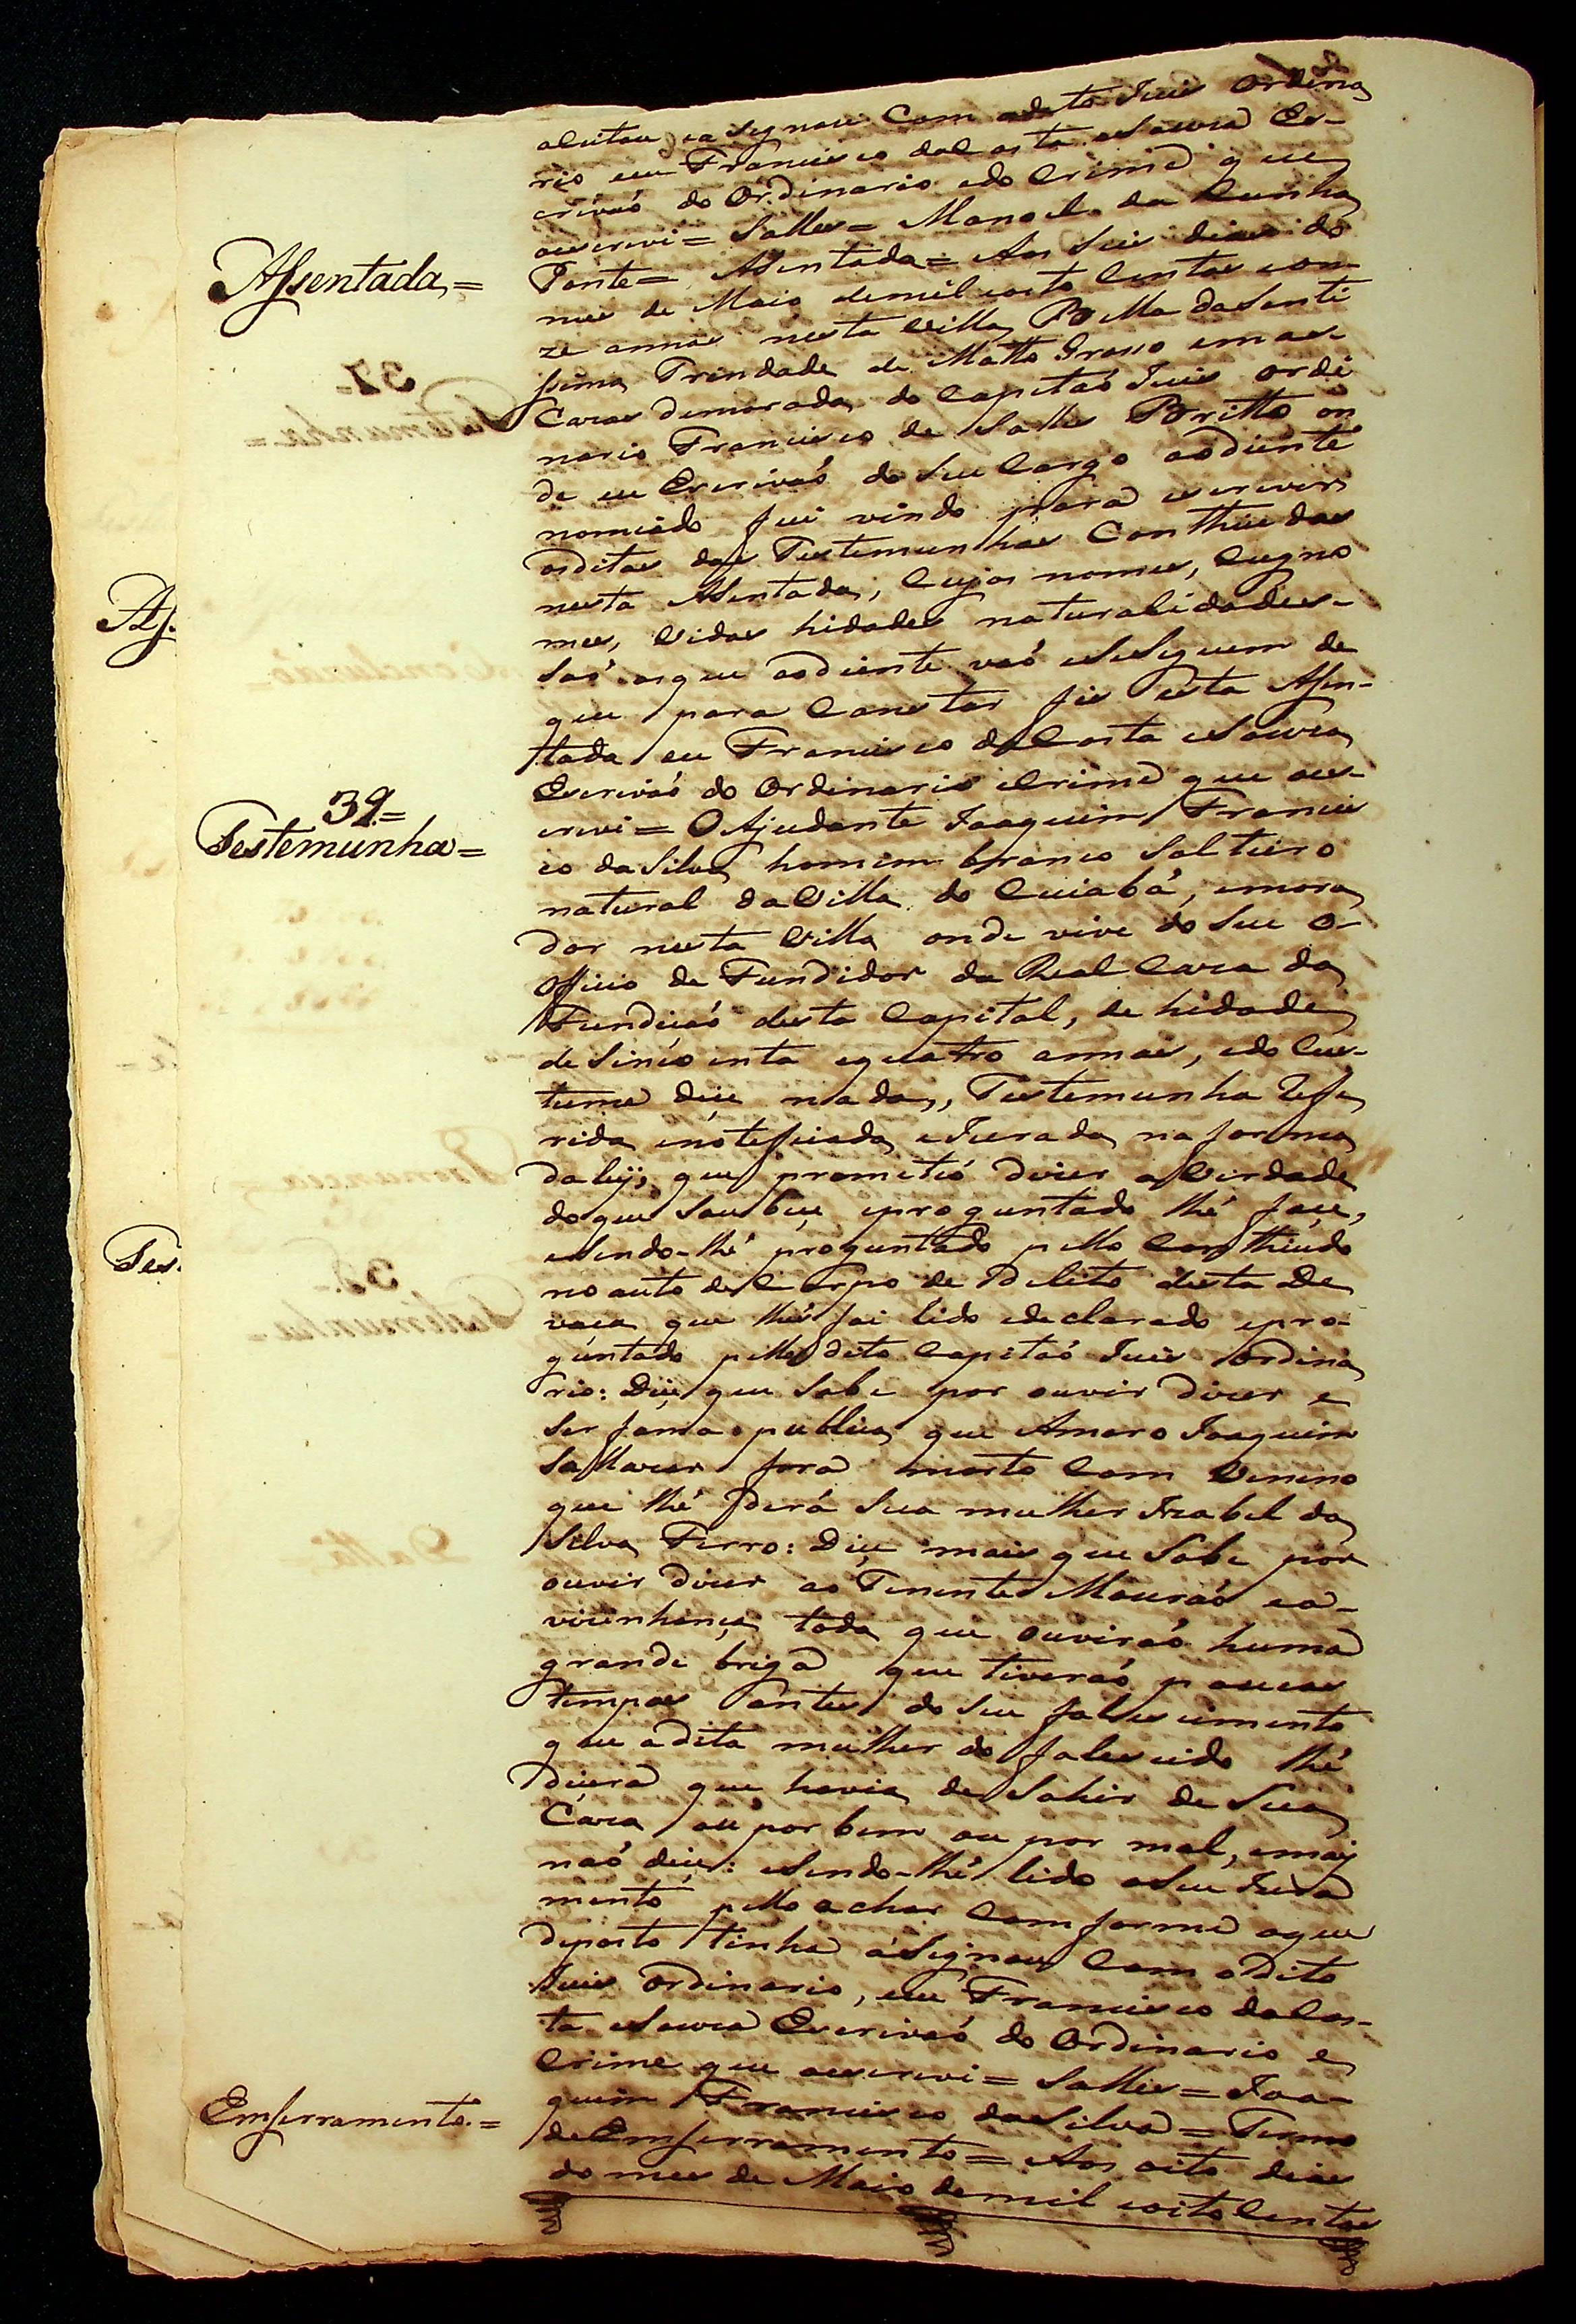 aSeitou, ea Signou Com odito Juis Ordina
rio eu Francisco da Costa eSouza Es-
crivaó do Ordinario edo Crime que
oescrevi = Salles = Manoel da Cunha
Ponte = ASentada = Aos Seis dias do
Assentada =
mes de Maio demil eoito Centos eon-
ze annos nesta Villa Bella da Santi
sima Trindade de Matto Groso em as
Cazas demorada do Capitaó Juis ordi
nario Francisco de Salles Britto on
de eu Escrivaó do Seu Cargo aodiente
nomiado fui vindo para escrever
osditos das Testemunhas Conthiudas
nesta ASentada, Cujos nomes, Cugno
mes, Vidas hidades naturalidades-
Saó osque aodiente vaó eSeSeguem de
que para Constar fis esta ASen-
tada eu Francisco da Costa eSouza
Escrivaó do Ordinario eCrime que oes-
crevi = O Ajudante Joaquim Francis
39=
Testemunha=
co da Silva homem branco Solteiro
natural da Villa do Cuiabá, emora
dor nesta Villa onde vive do Seu O-
Officio de Fundidor da Real Caza da
Fundicaó desta Capital, de hidade
de Sincoenta equatro annos, edo Cus-
tume dice nada,, Testemunha Refe
rida enoteficada eJurada na forma
da ley, que prometió dizer a Verdade
doque Soubece eproguntado lhé foce,
eSendo-lhé proguntado pello Conthiudo
no auto de Corpo de Delito desta De
vaca que lhé foi lido edeclarado epro-
guntado pello dito Capitaó Juis Ordina
rio: Dice que Sabe por ouvir dizer e
Ser fama publica que Amaro Joaquim
Sallazar fora morto Com Veneno
que lhé dera Sua mulher Izabel da
Silva Ferro: Dice mais que Sabe por
ouvir dizer ao Tenente Mouraó ea-
vizinhança toda que ouviraó huma
grande briga que tiveraó poucos
tempos antes do Seu falescimento
que adita mulher do falescido lhé
dicera que havia de Sahir de Sua
Caza ou por bem ou por mal, emais
naó dice: eSendo-lhé lido oSeu Jura
mento pello achar Comforme oque
deposto tinha aSignou Com odito
Juis Ordinario, eeu Francisco da Cos-
ta eSouza Escrivaó do Ordinario e
Crime que oescrevi = Salles = Joa-
quim Francisco da Silva = Termo
Emserramento.=
de Emserramento = Aos oito dias
do mes de Maio demil eoito Centos